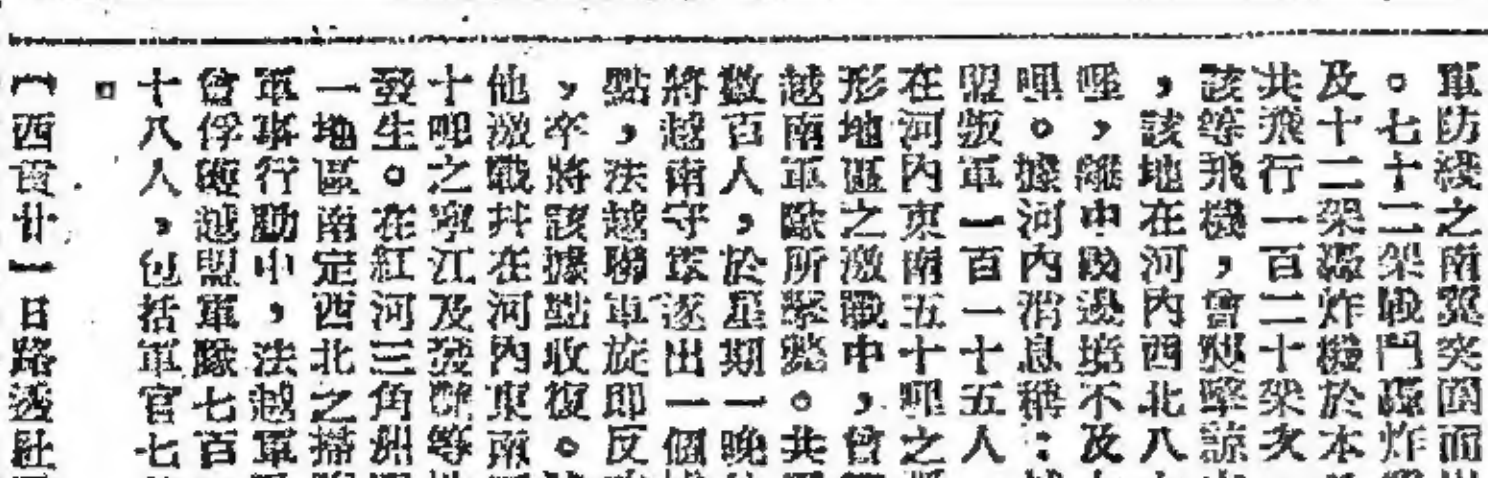 軍防綫之南翼突圍而
。七十二架戰鬥轟炸
及十二架轟炸機於本
共飛行一百二十架次
該等飛機，曾襲擊諒
，該地在河內西北八
哩，離中段邊境不及
哩。據河內消息稱：
盟叛軍一百一十五人
在河內東南五十哩之
形地區之激戰中，曾
越南軍隊所擊斃。共
數百人，於星期一晚
將越南守衆逐出一個
點，法越聯軍旋即反
，卒將該據點收復。
他激戰共在河內東南
十哩之寧江及發艷等
發生。在紅河三角洲
一地區南定西北之掃
軍事行動中，法越軍
曾俘獲越盟軍隊七百
十八人，包括軍官七
。
【西貢廿一日路透社